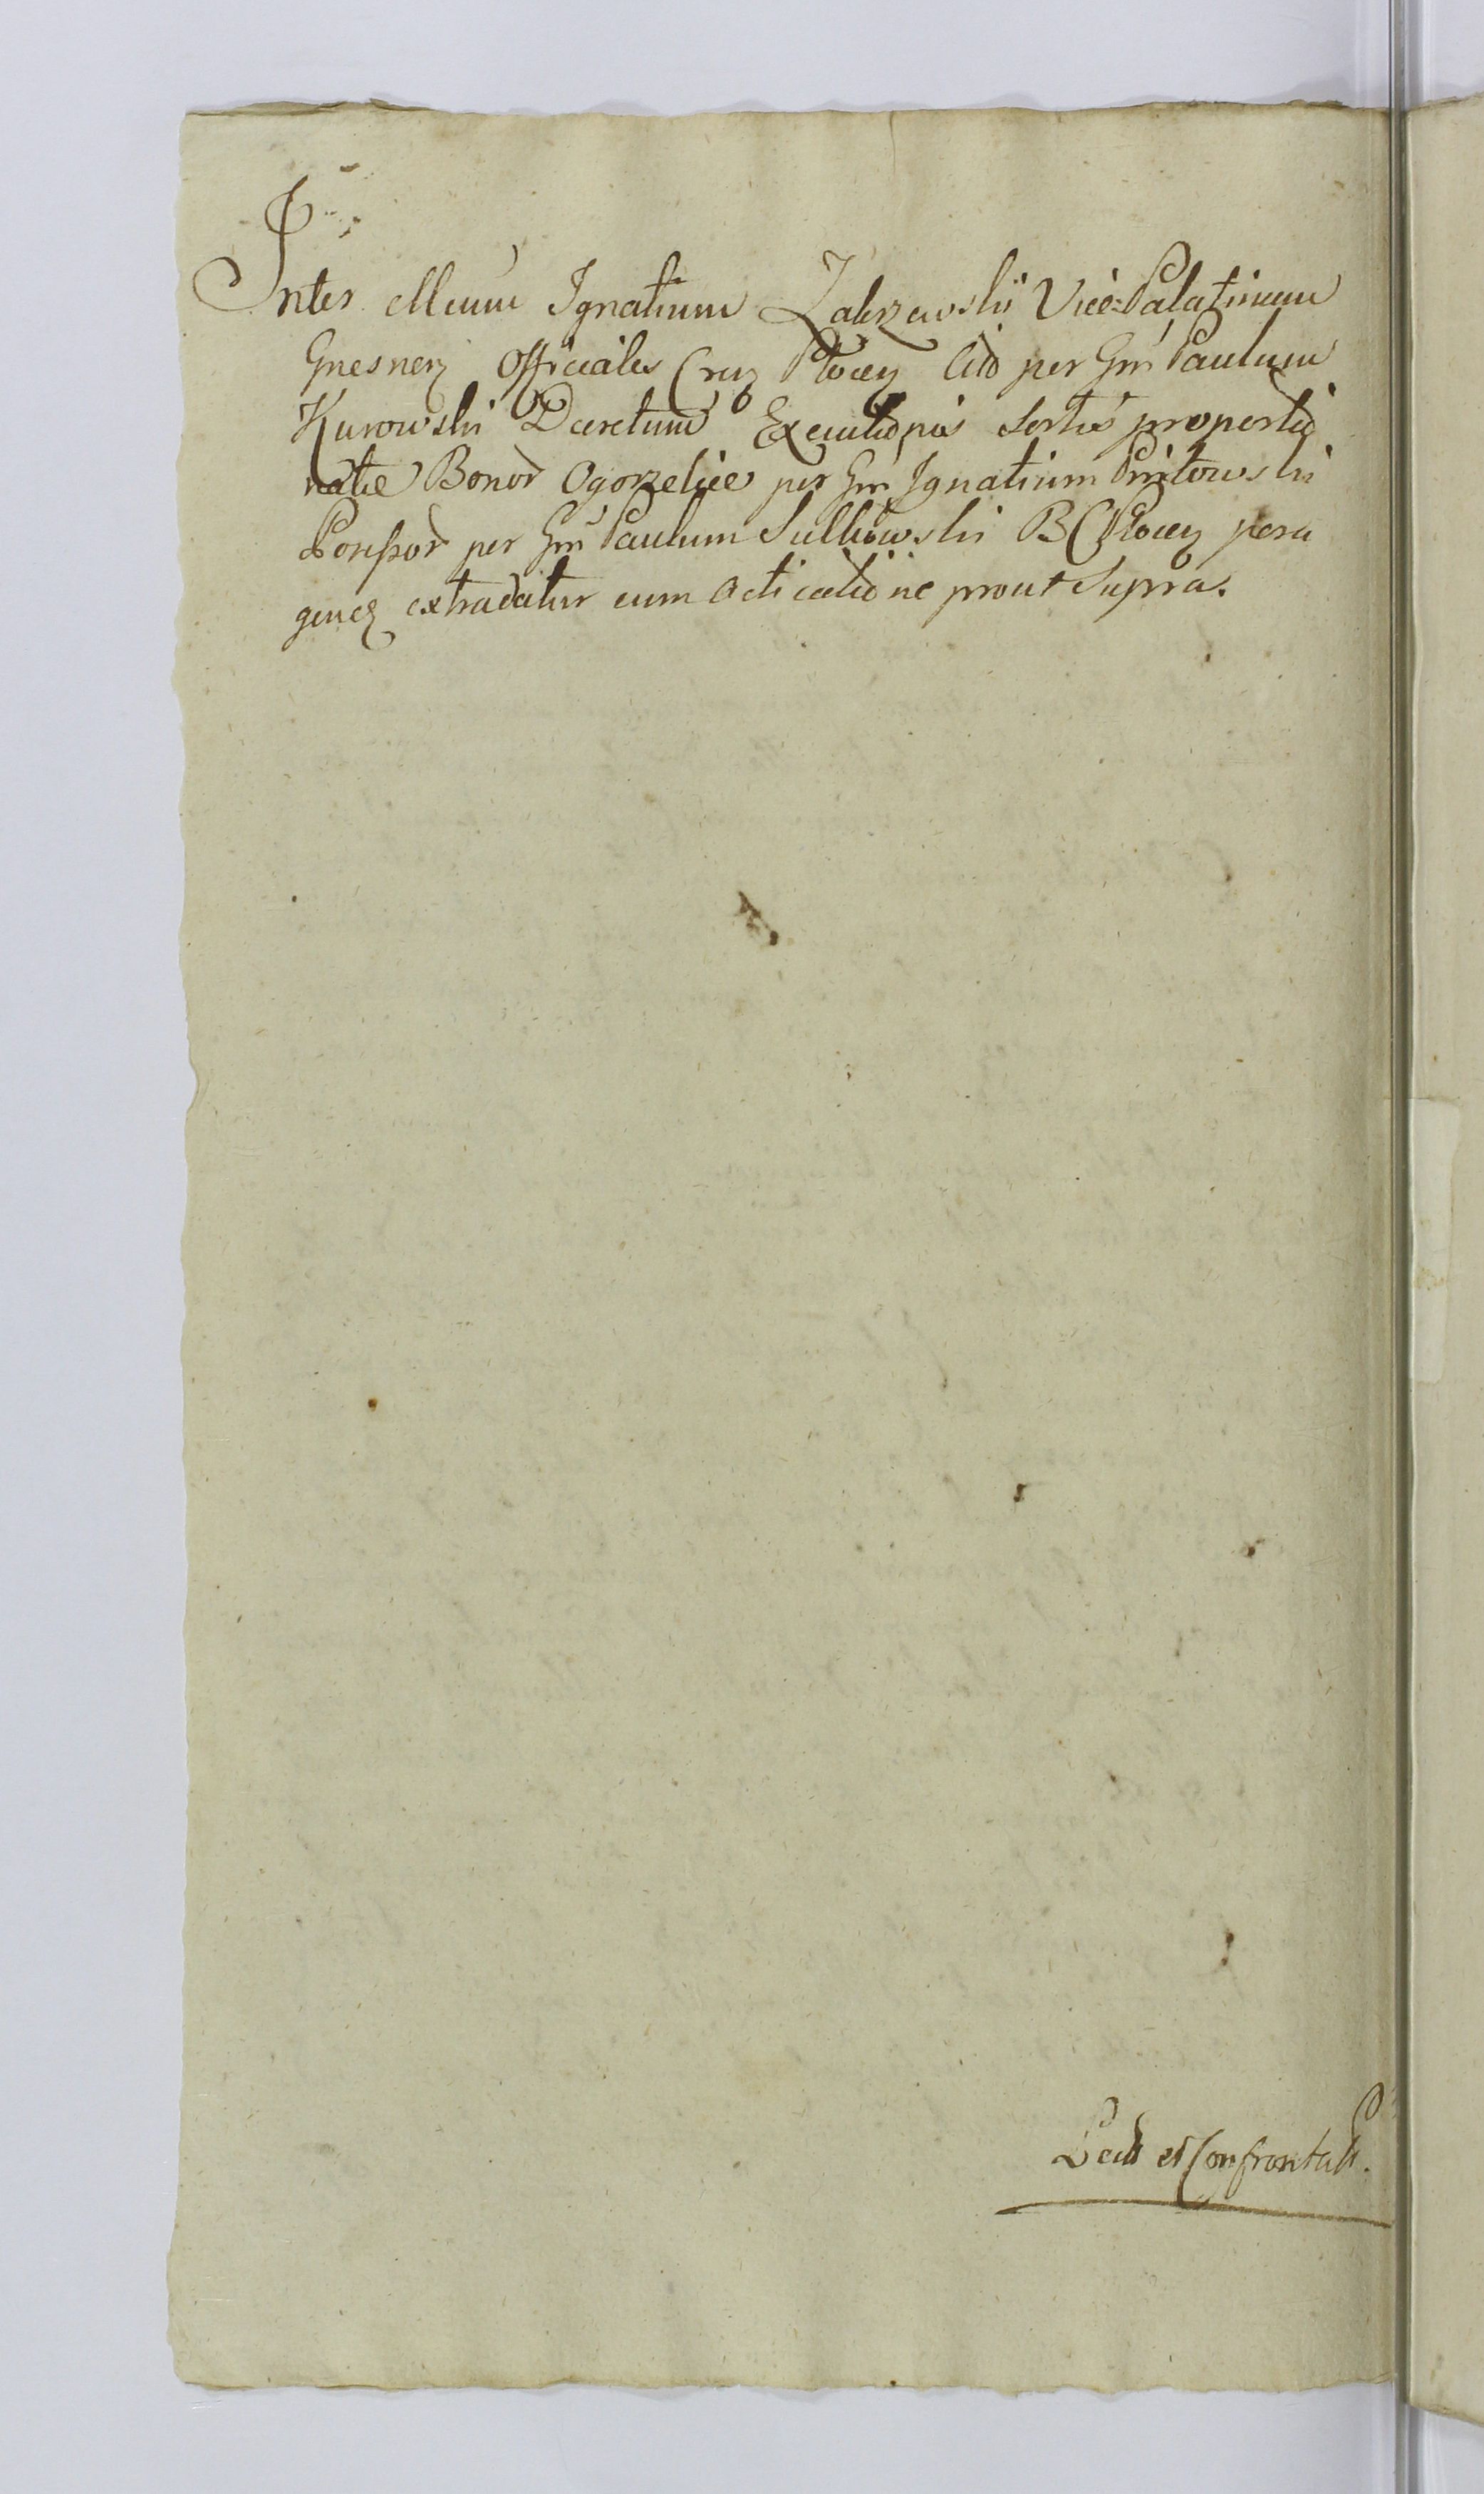 Inter Mcum Ignatium Zakrzewski Vice-Palatinum
Gnesnen Officiales Cren Plocen Cit͠o per Gm Paulum
Kurowski Decretum Executionis Sortis proportio
natae Bonor Ogorzelice per Gm Ignatium
Possor per Gm Paulum Sulkowski B C Plocen pera
gend extradatur cum Acticatione prout Supra.
Lect et Confrontatt.